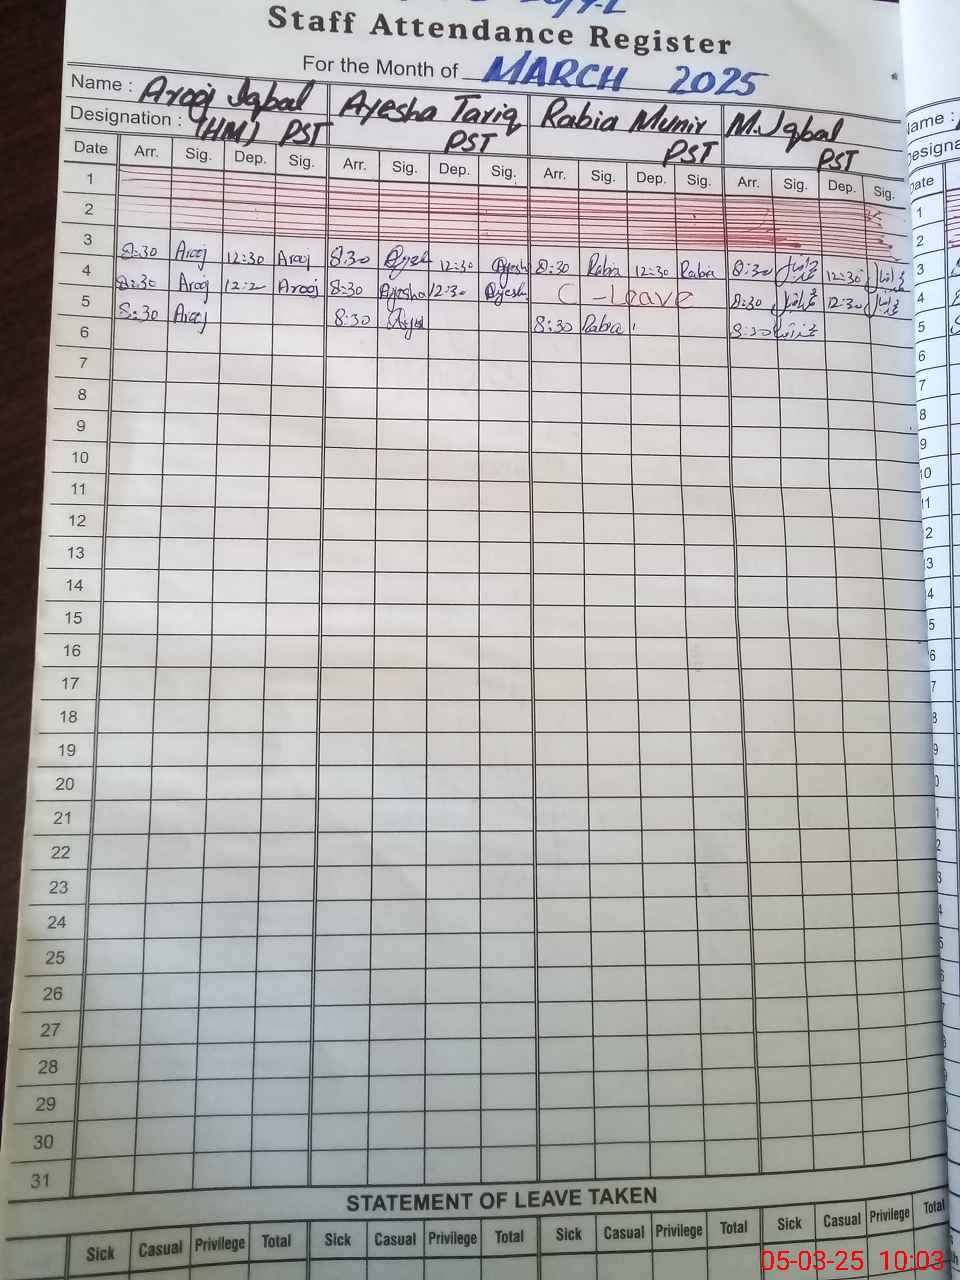 Staff Attendance Register
For the Month of MARCH 2025
Name : Arooj Iqbal Ayesha Tariq Rabia Munir M. Iqbal
Designation : (HM) PST PST PST PST
Date Arr. Sig. Dep. Sig. Arr. Sig. Dep. Sig. Arr. Sig. Dep. Sig. Arr. Sig. Dep. Sig.
1
2
3 8:30 Arooj 12:30 Arooj 8:30 12:30 Ayesha 8:30 Rabia 12:30 Rabia 8:30 12:30
4 8:30 Arooj Arooj 8:30 Ayesha 12:30 Ayesha C - Leave 8:30 12:30
5 8:30 Arooj 8:30 8:30 Rabia 8:30
6
7
8
9
10
11
12
13
14
15
16
17
18
19
20
21
22
23
24
25
26
27
28
29
30
31
STATEMENT OF LEAVE TAKEN
Sick Casual Privilege Total Sick Casual Privilege Total Sick Casual Privilege Total Sick Casual Privilege Total
05-03-25 10:03